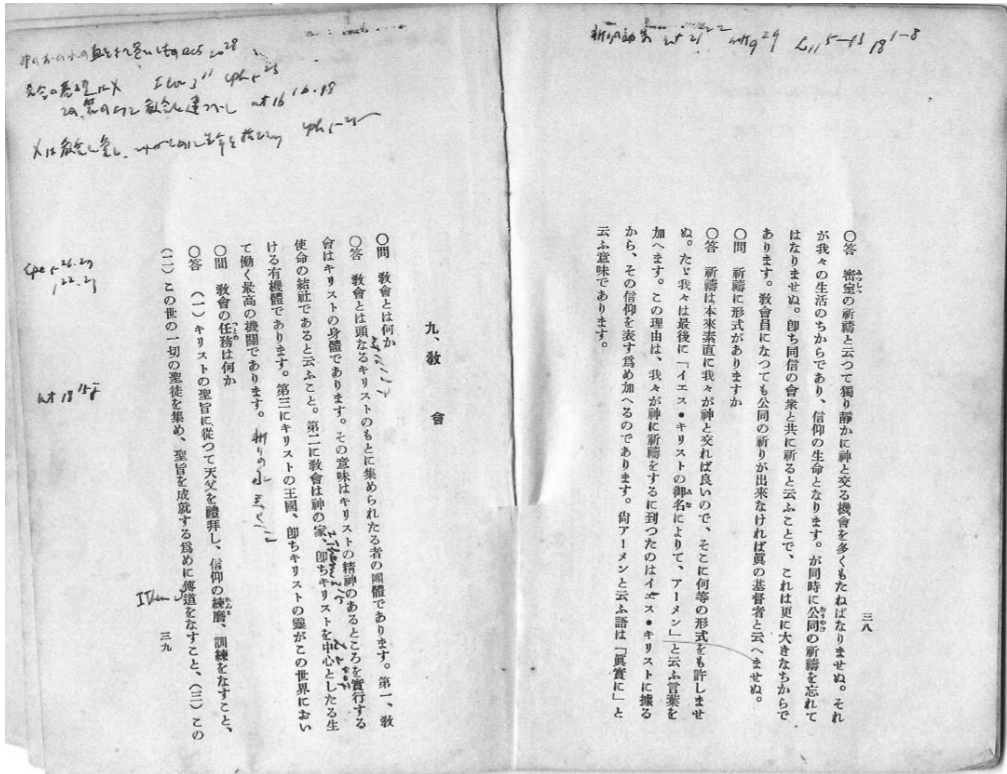 mt 21 22 mt 9 29 L 11 5-13 18 1-8
〇答 密室の祈禱と云つて獨り靜かに神と交る機會を多くもたねばなりませぬ。それ
が我々の生活のちからであり、信仰の生命となります。が同時に公同の祈禱を忘れて
はなりませぬ。卽ち同信の會衆と共に祈ると云ふことで、これは更に大きなちからで
あります。敎會員になつても公同の祈りが出來なければ眞の基督者と云へませぬ。
〇問 祈禱に形式がありますか
〇答 祈禱は本來素直に我々が神と交れば良いので、そこに何等の形式をも許しませ
ぬ。たゞ我々は最後に「イエス・キリストの御名によりて、アーメン」と云ふ言葉を
加へます。この理由は、我々が神に祈禱をするに到つたのはイエス・キリストに據る
から、その信仰を表す爲め加へるのであります。尙アーメンと云ふ語は「眞實に」と
云ふ意味であります。
三八
acts 20 28
mt 16 16.18
九、敎 會
〇問 敎會とは何か
〇答 敎會とは頭なるキリストのもとに集められたる者の團體であります。第一、敎
會はキリストの身體であります。その意味はキリストの精神のあるところを實行する
使命の結社であると云ふこと。第二に敎會は神の家、卽ちキリストを中心としたる生
ける有機體であります。第三にキリストの王國、卽ちキリストの靈がこの世界におい
て働く最高の機關であります。
〇問 敎會の任務は何か
〇答 (一)キリストの聖旨に從つて天父を禮拜し、信仰の練磨、訓練をなすこと、
(二)この世の一切の聖徒を集め、聖旨を成就する爲めに傳道をなすこと、(三)この
mt 18 15
三九